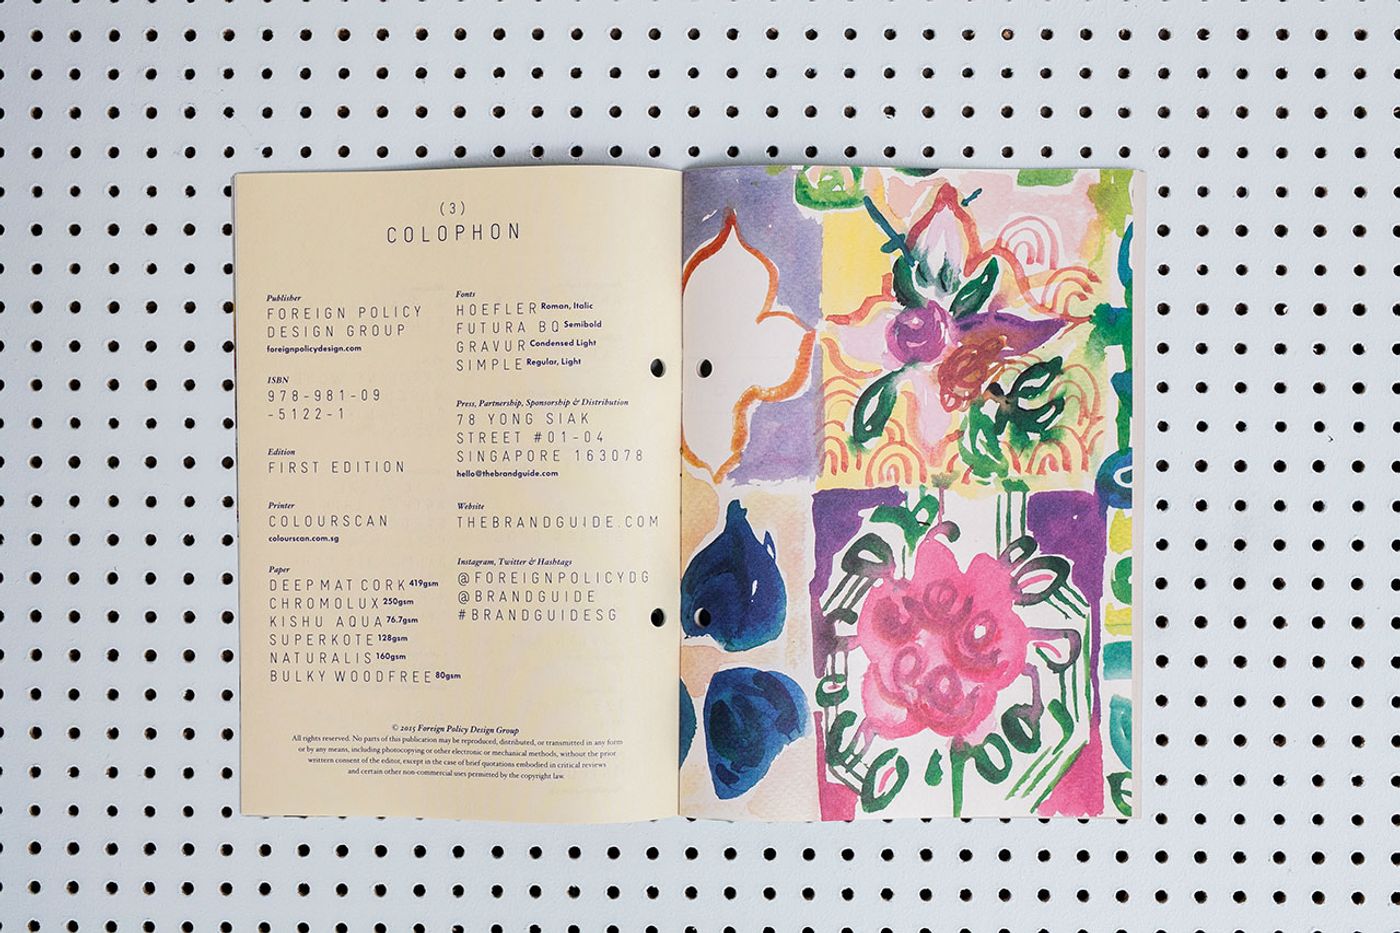 (3)
COLOPHON
Publisher
FOREIGN POLICY
DESIGN GROUP
foreignpolicydesign.com
ISBN
978-981-09
-5122-1
Edition
FIRST EDITION
Printer
COLOURSCAN
colourscan.com.sg
Paper
DEEPMAT CORK 419gsm
CHROMOLUX 250gsm
KISHU AQUA 76.7gsm
SUPERKOTE 128gsm
NATURALIS 160gsm
BULKY WOODFREE 80gsm
Fonts
HOEFLER Roman, Italic
FUTURA BQ Semibold
GRAVUR Condensed Light
SIMPLE Regular, Light
Press, Partnership, Sponsorship & Distribution
78 YONG SIAK
STREET #01-04
SINGAPORE 163078
hello@thebrandguide.com
Website
THEBRANDGUIDE.COM
Instagram, Twitter & Hashtags
@FOREIGNPOLICYDG
@BRANDGUIDE
#BRANDGUIDESG
© 2015 Foreign Policy Design Group
All rights reserved. No parts of this publication may be reproduced, distributed, or transmitted in any form
or by any means, including photocopying or other electronic or mechanical methods, without the prior
written consent of the editor, except in the case of brief quotations embodied in critical reviews
and certain other non-commercial uses permitted by the copyright law.